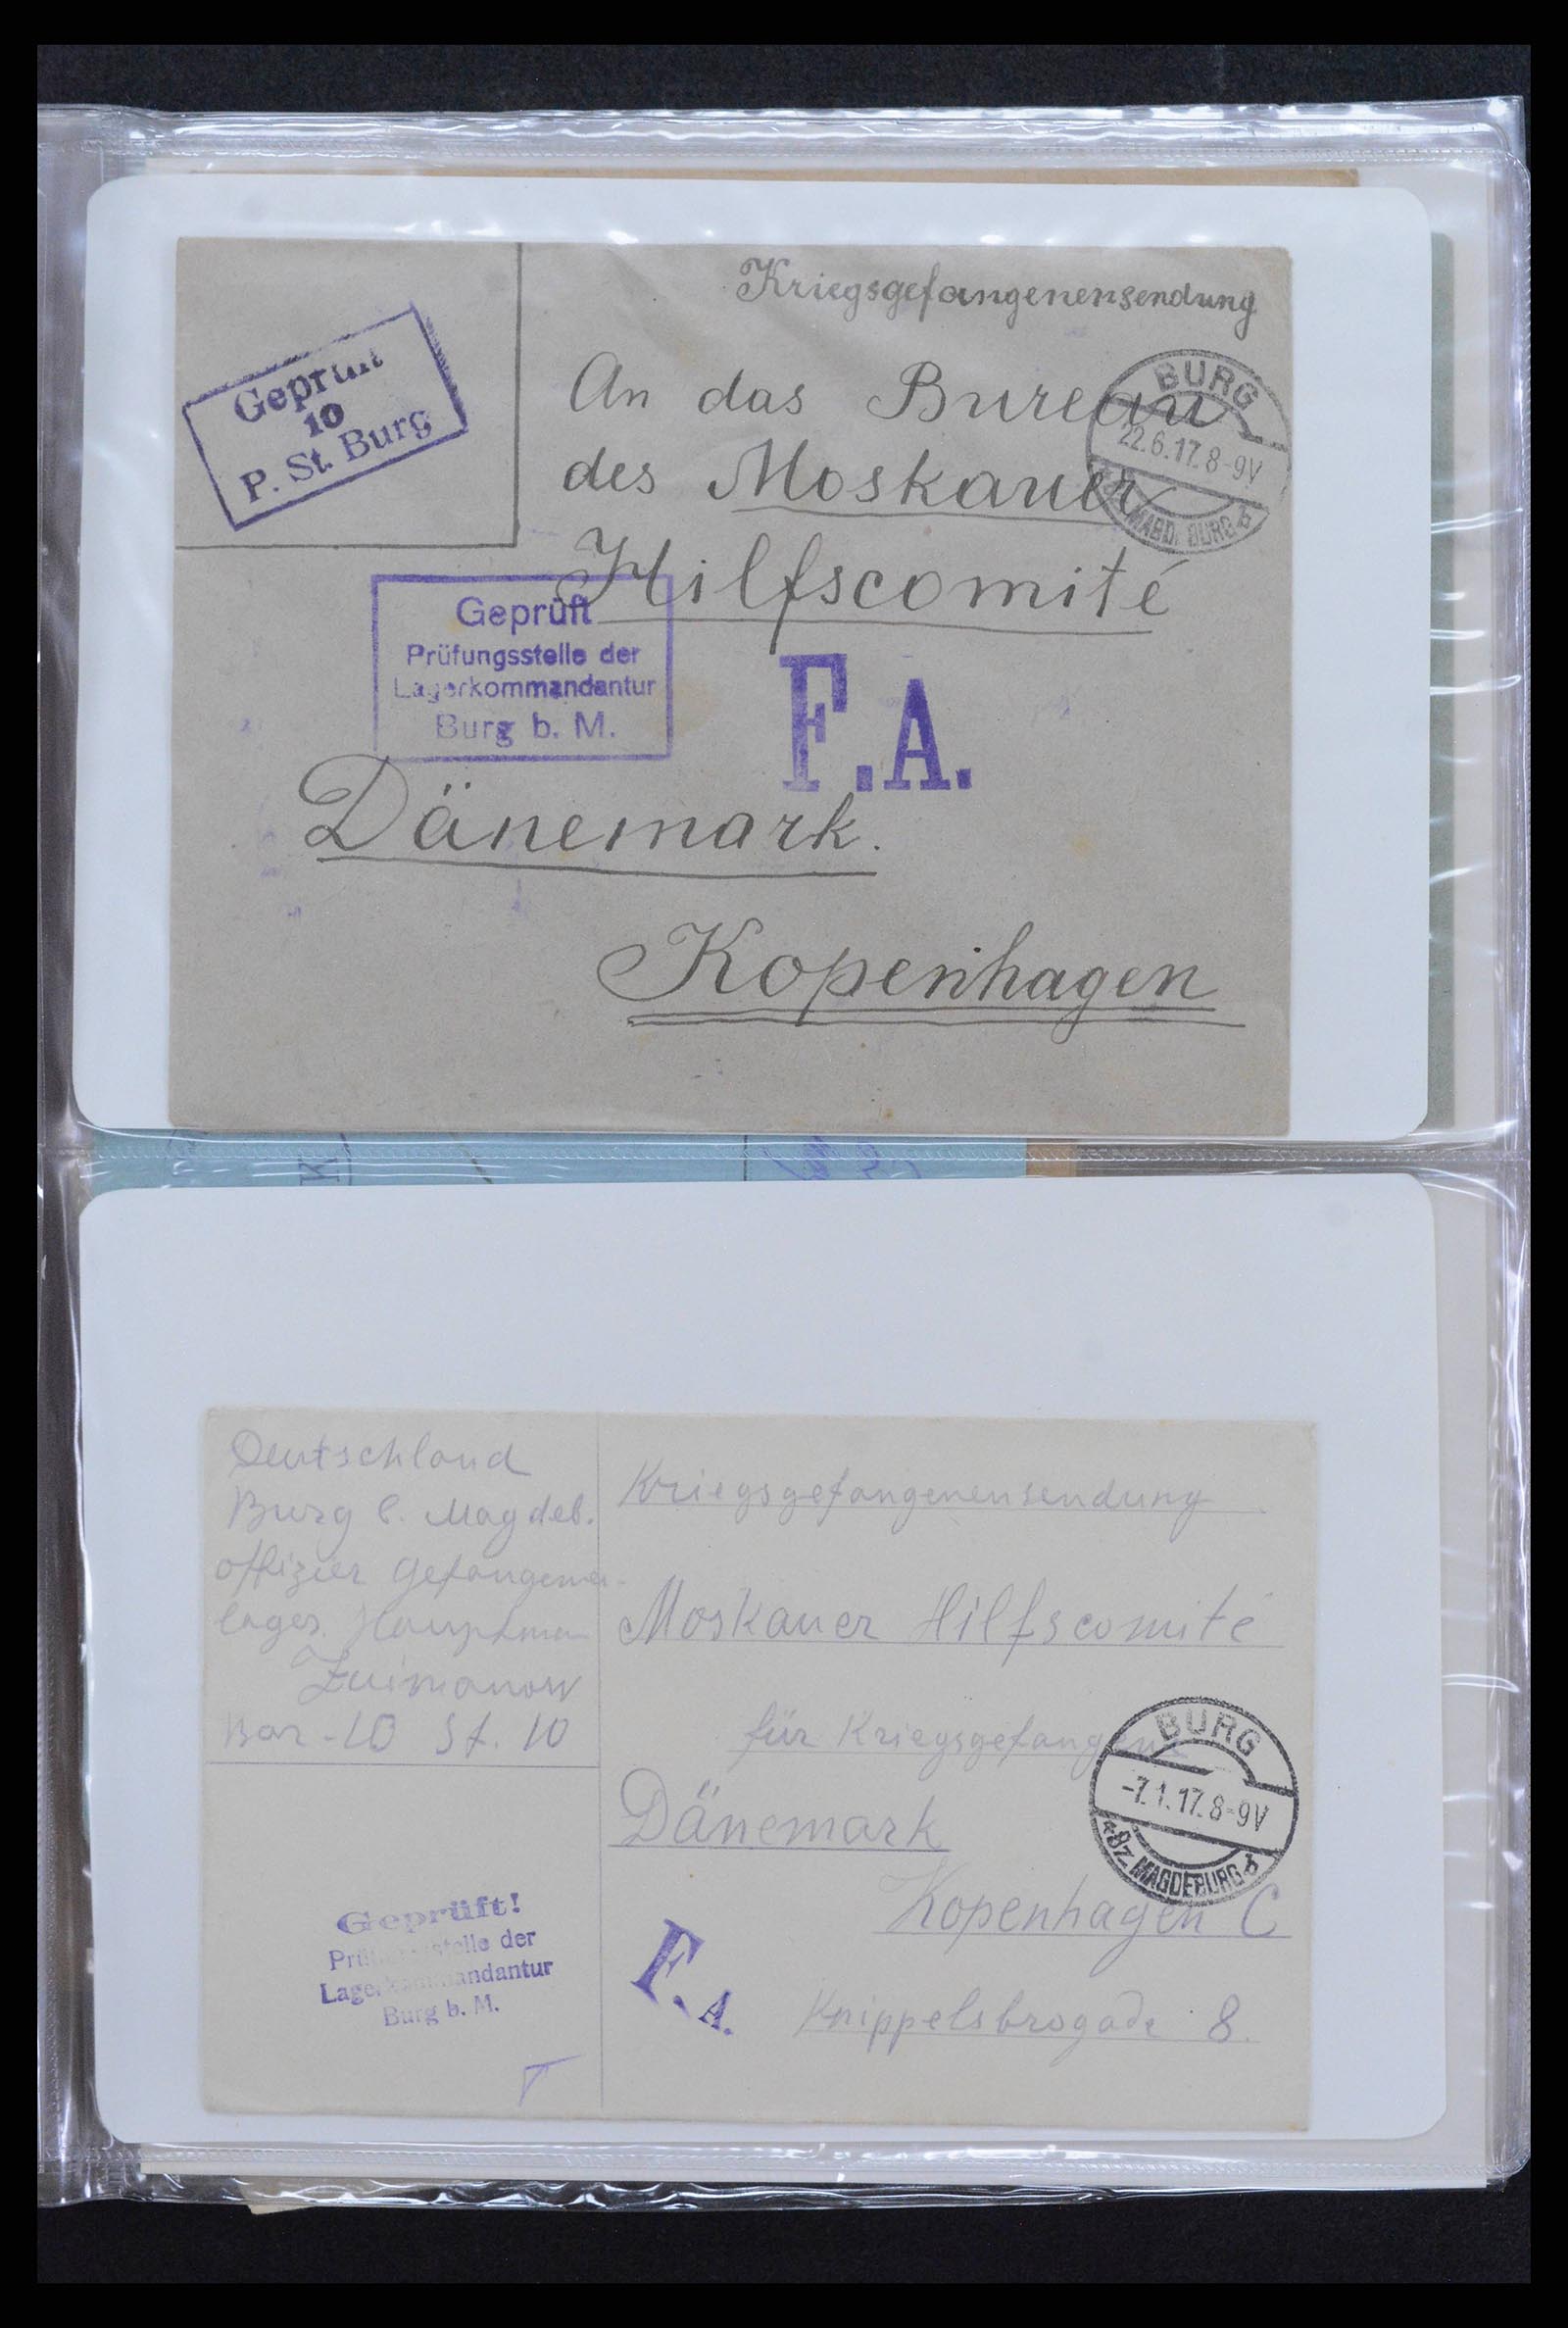 Kriegsgefangenensendung
Geprüft
10
P. St. Burg
An das Bureau
des Moskauer
Hilfscomité
BURG
22.6.17.8-9V
Geprüft
Prüfungsstelle der
Lagerkommandantur
Burg b. M.
F.A.
Dänemark.
Kopenhagen
Deutschland
Burg b. Magdeb.
Offizier Gefangenen-
lager. Hauptman
Bar-10 St. 10
Kriegsgefangenensendung
Moskauer Hilfscomité
für Kriegsgefangene
BURG
-7.1.17.8-9V
*Bz. MAGDEBURG b
Dänemark
Kopenhagen C
Knippelsbrogade 8.
Geprüft!
Prüfungsstelle der
Lagerkommandantur
Burg b. M.
F.A.